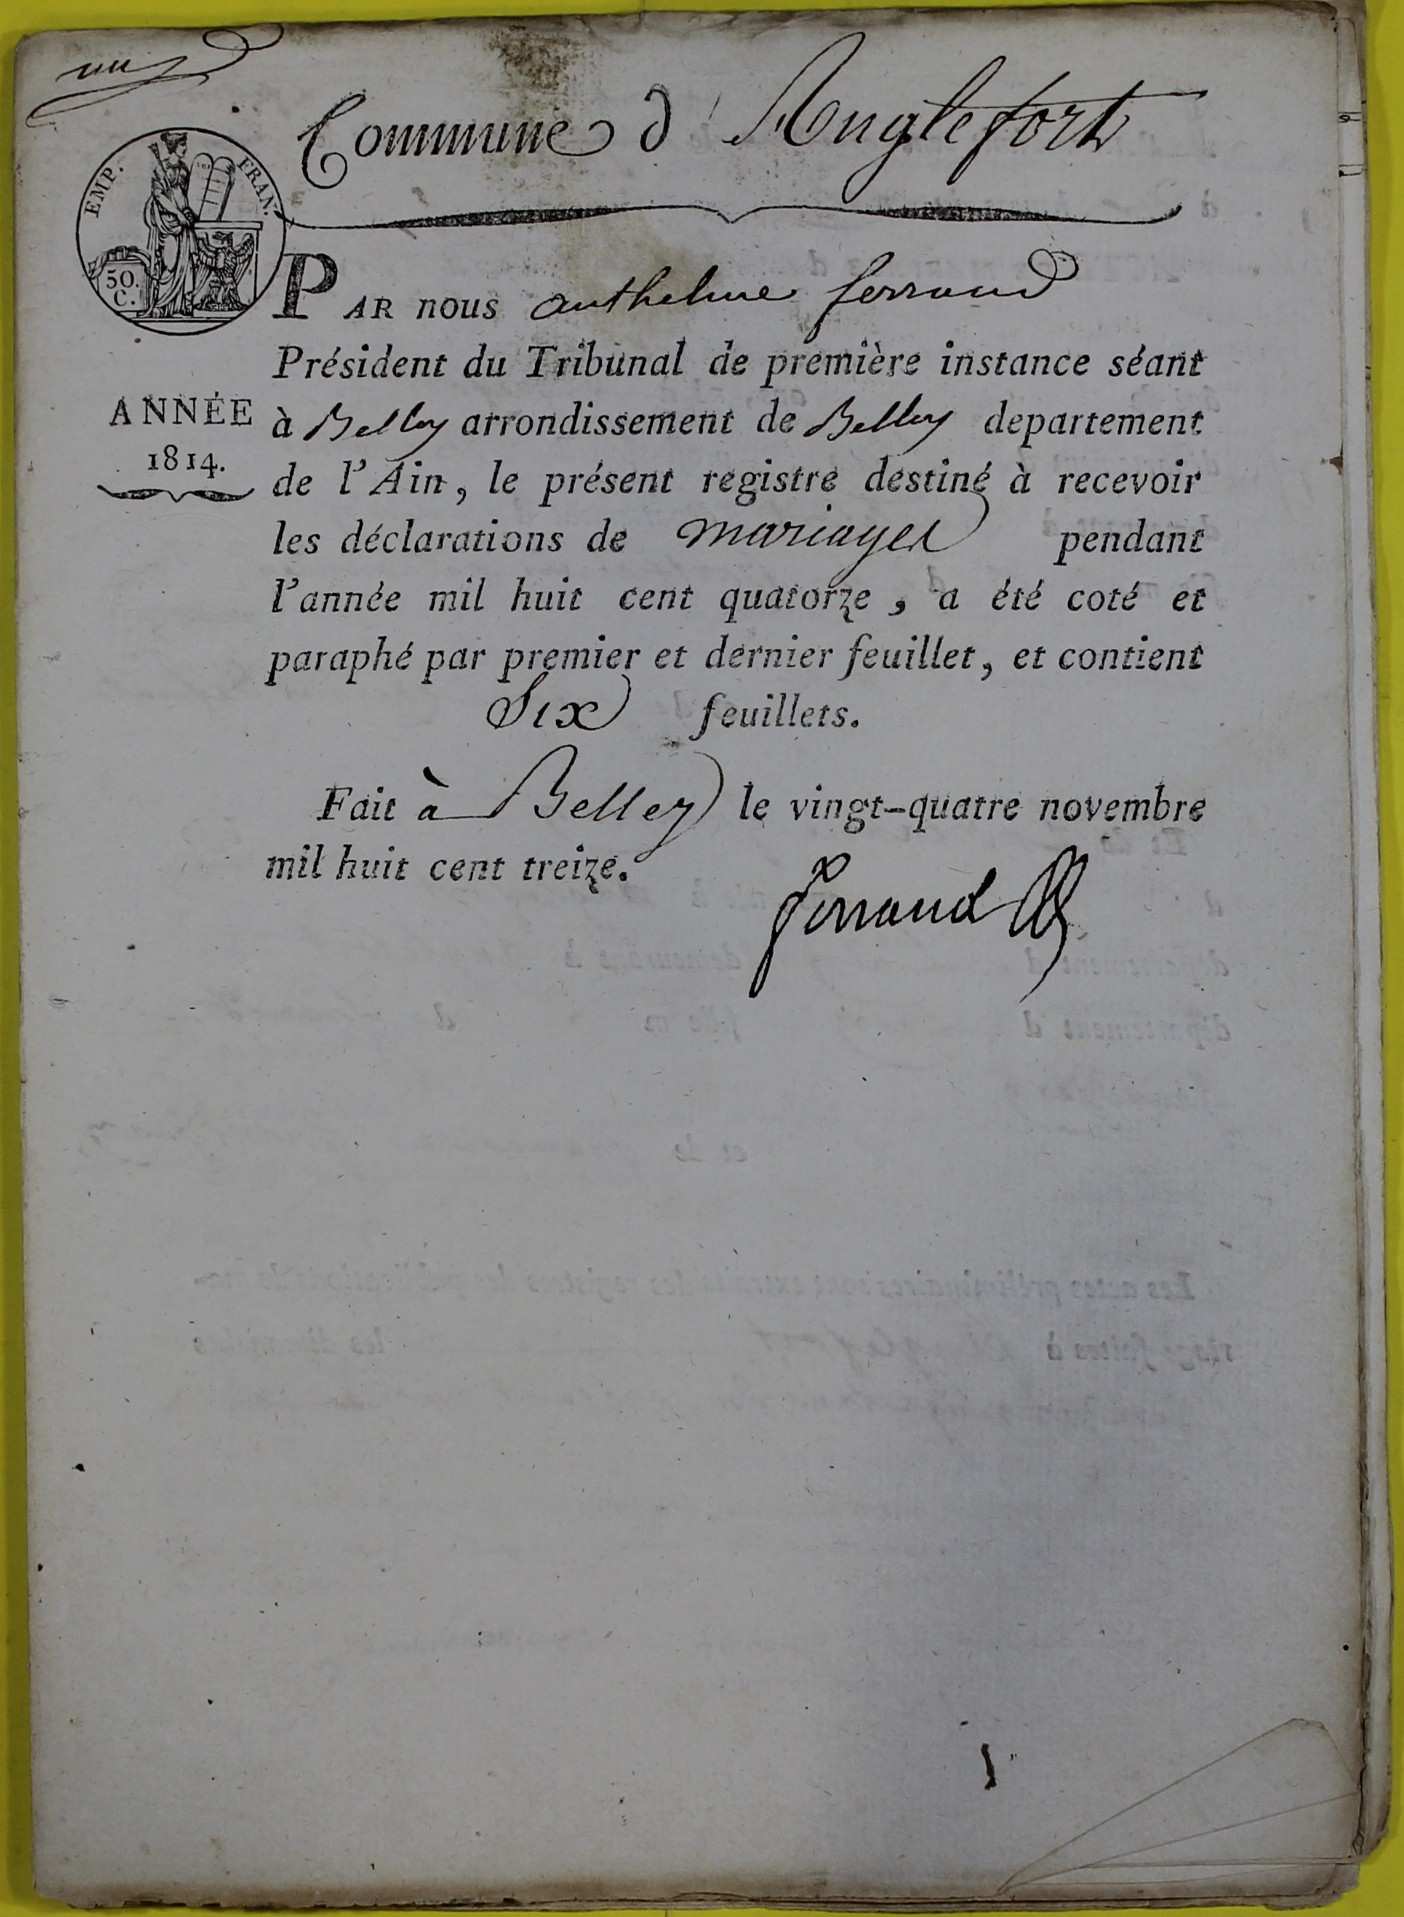 un
Commune d'Anglefort
EMP. FRAN.
50.
C.
PAR nous anthelme ferrand
Président du Tribunal de première instance séant
ANNÉE
1814.
à Belley arrondissement de Belley departement
de l'Ain, le présent registre destiné à recevoir
les déclarations de mariages pendant
l'année mil huit cent quatorze, a été coté et
paraphé par premier et dernier feuillet, et contient
Six feuillets.
Fait à Belley le vingt-quatre novembre
mil huit cent treize.
ferrand